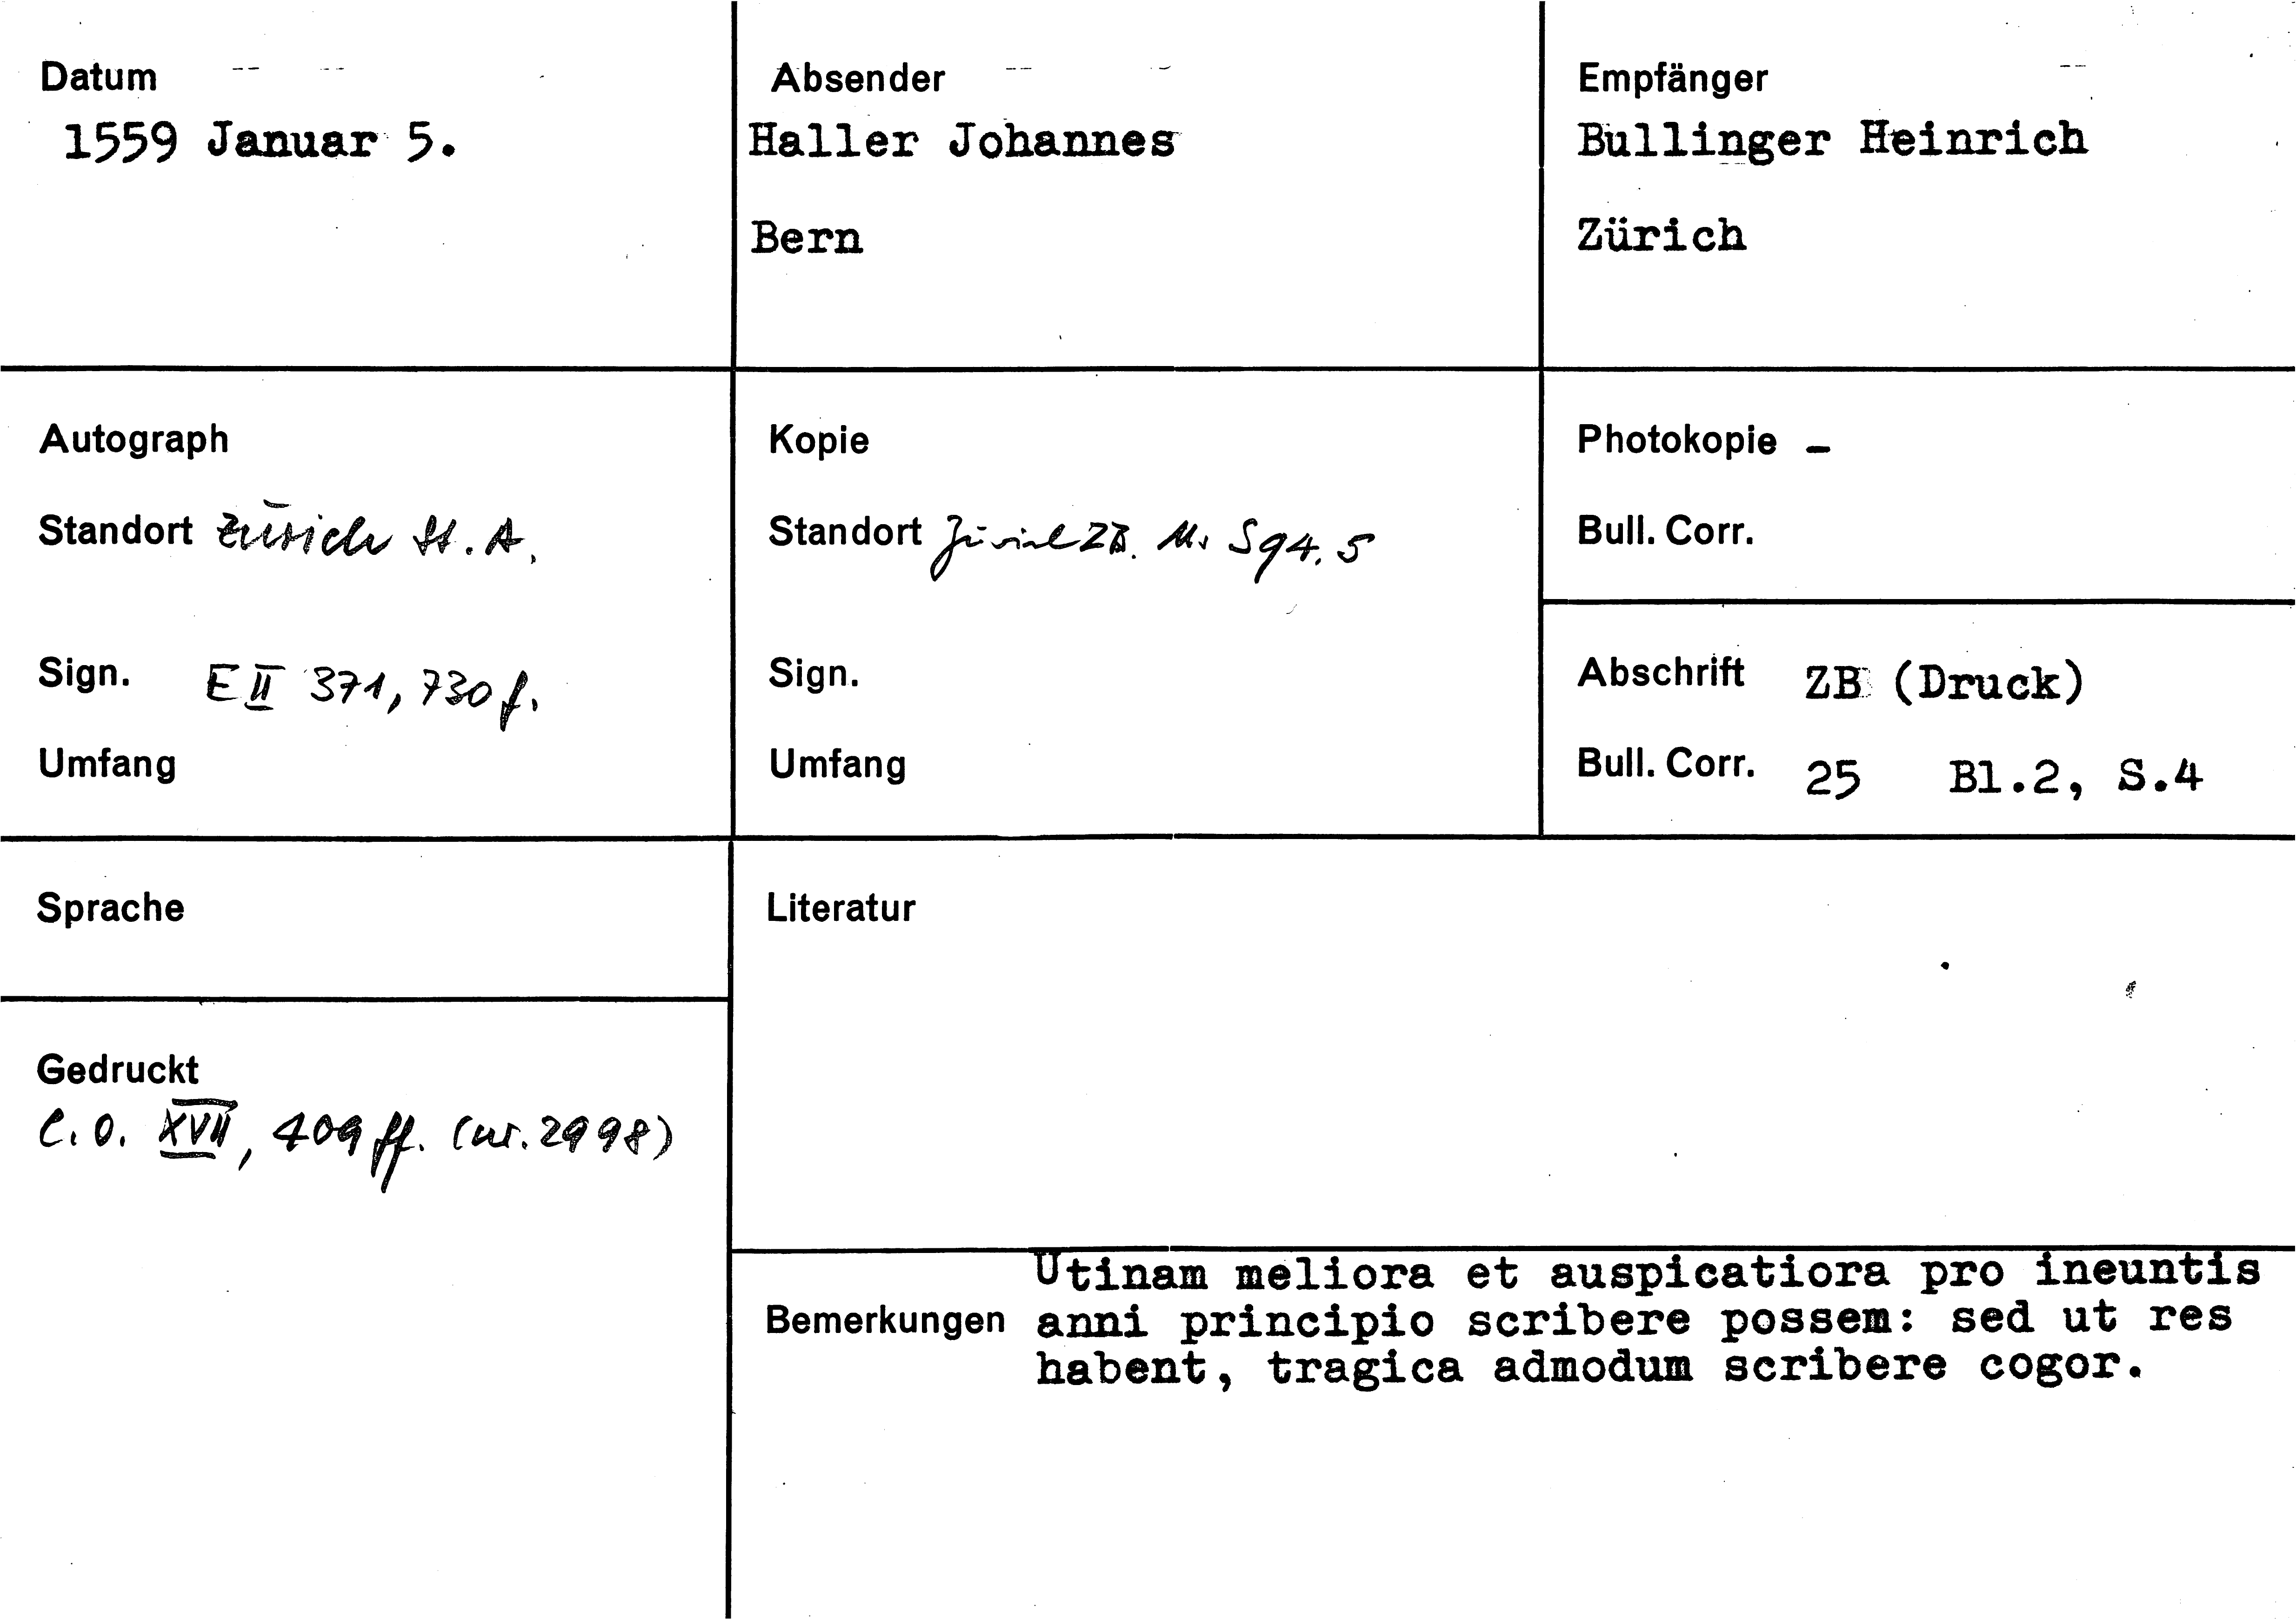 Datum
1559 Januar 5.
Absender
Haller Johannes
Bern
Empfänger
Bullinger Heinrich
Zürich
Autograph
Standort Zürich St. A.
Sign. E II 371, 730 f.
Umfang
Kopie
Standort Zürich ZB. Ms S 94. 5
Sign.
Umfang
Photokopie -
Bull. Corr.
Abschrift ZB (Druck)
Bull. Corr. 25 Bl.2, S.4
Sprache
Gedruckt
C. O. XVII, 409 ff. (nr. 2998)
Literatur
Bemerkungen
Utinam meliora et auspicatiora pro ineuntis
anni principio scribere possem: sed ut res
habent, tragica admodum scribere cogor.